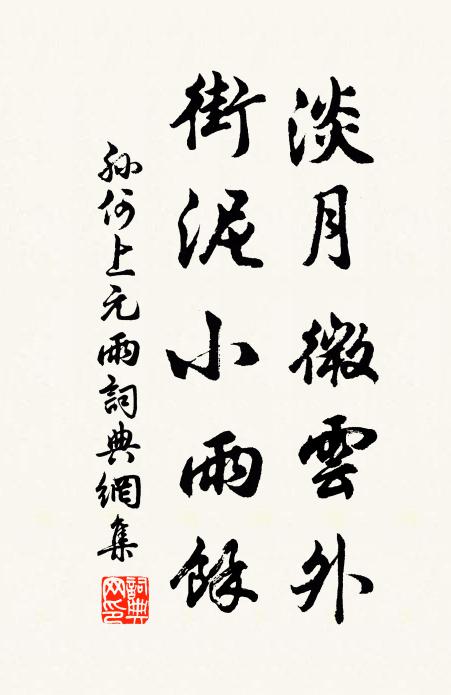 淡月微雲外
街泥小雨餘
孫何上元雨詞典網集
詞典网印